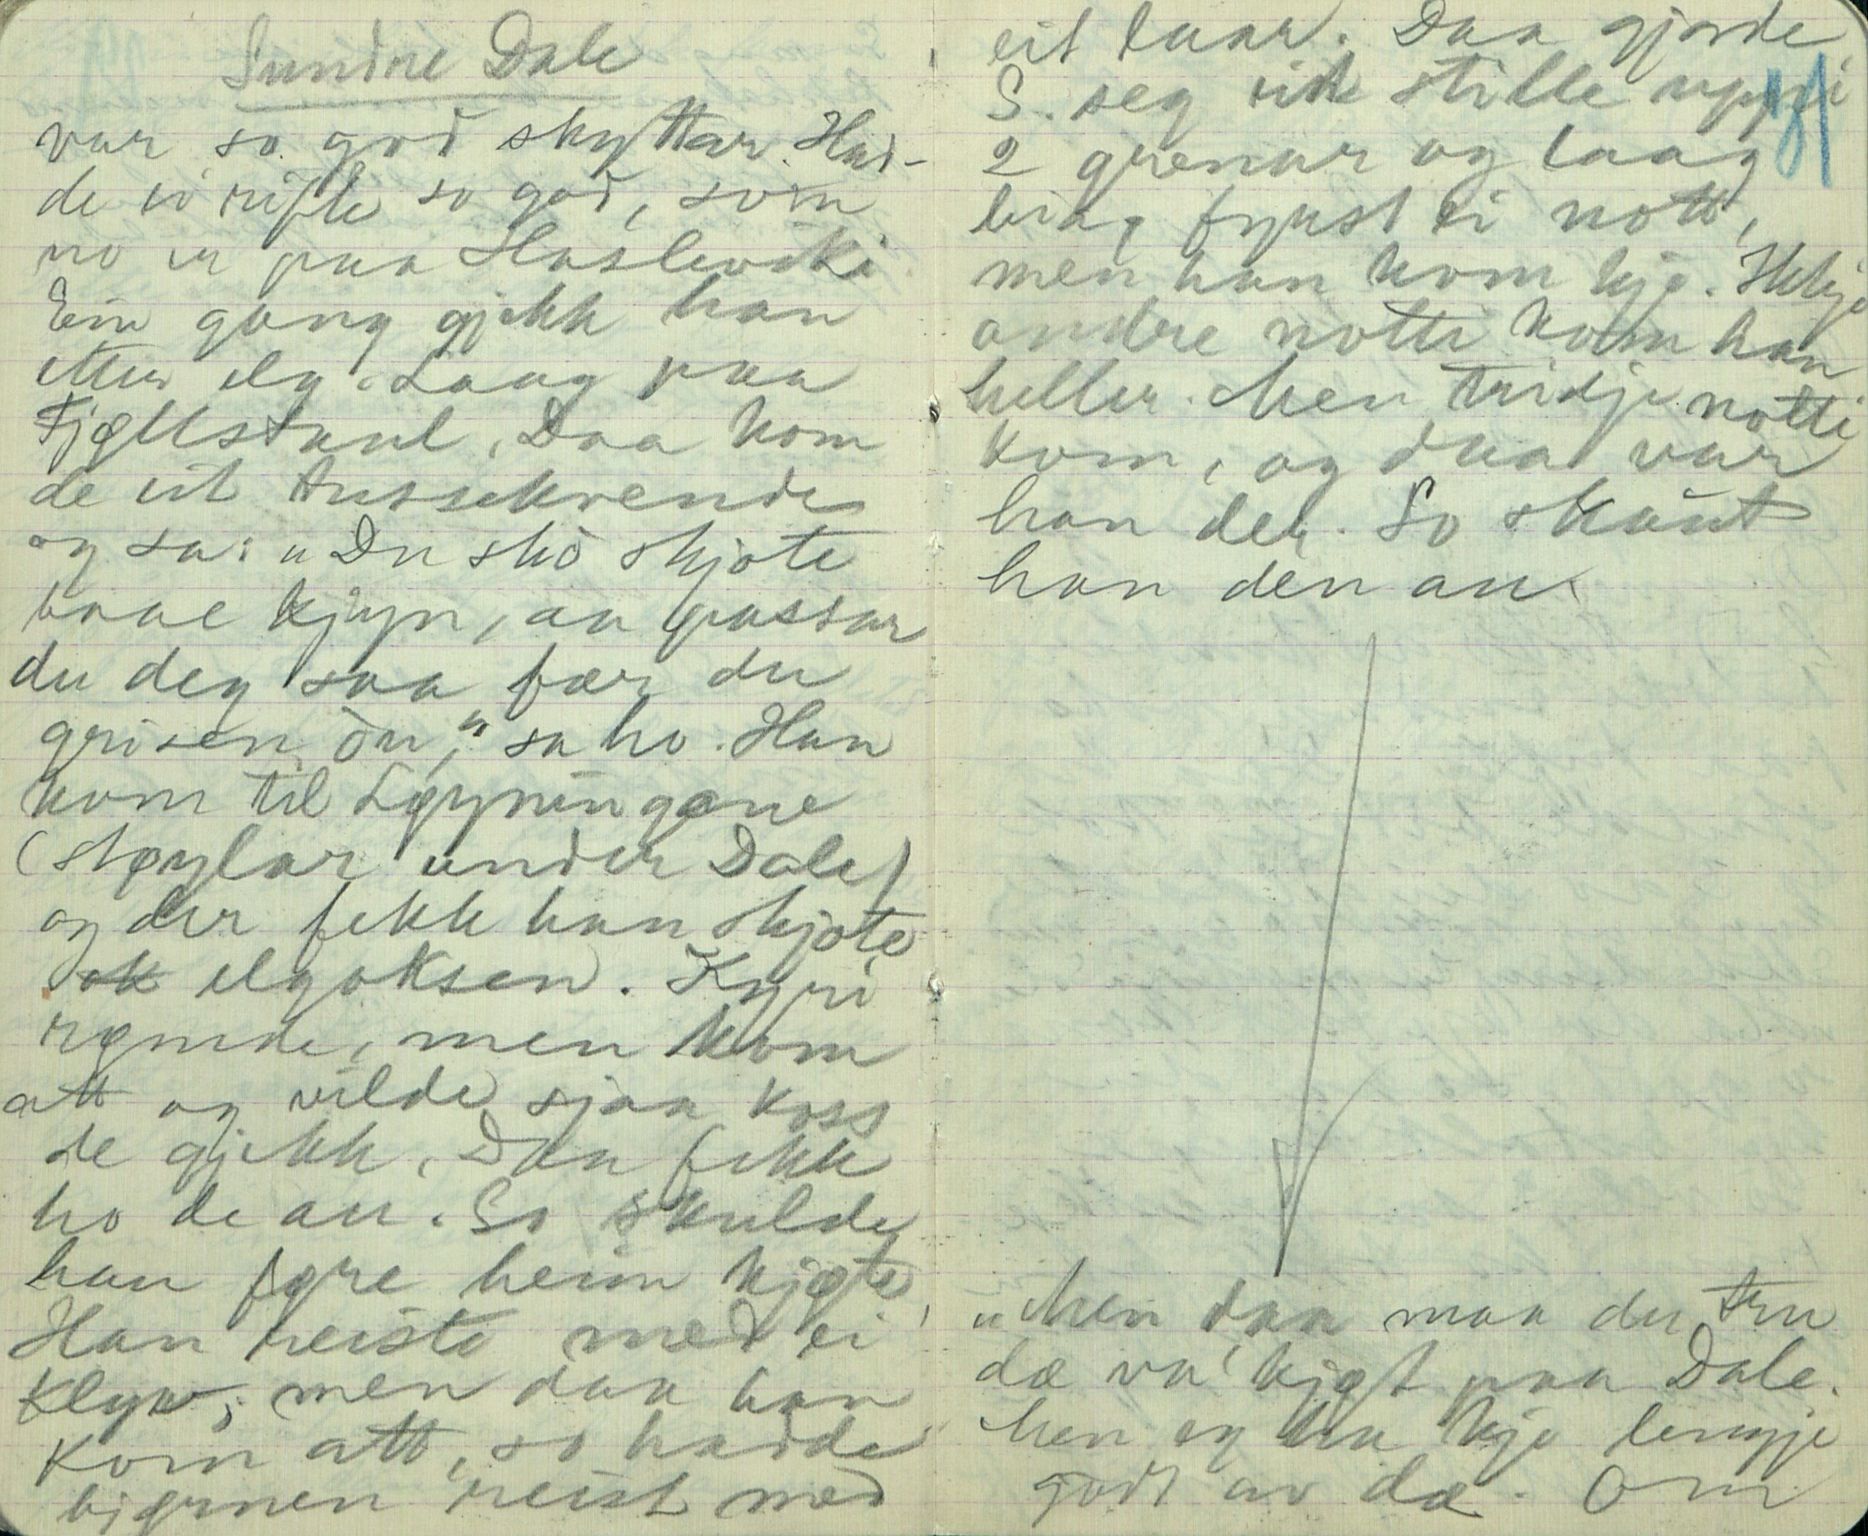 Sundre Dale
var so god skyttar. Had-
de ei rifle so god, som
no er paa Haslevoki
Ein gong gjekk han
etter elg. Laag paa
Fjøllstaul. Daa kom
de eit tussekvende
og sa: "Du skò skjote
baae kjyn, aa passar
du deg saa fær du
grisen òu," sa ho. Han
kom til Løyningane
(støylar under Dale)
og der fekk han skjote
ok elgoksen. Kyri
rømde, men kom
att og vilde sjaa koss
de gjekk. Daa fekk
ho de au. So skulde
han føre heim kjøte
Han reiste med ei
klyv, men daa han
kom att, so hadde
bjørnen reist med
eit laar. Daa gjorde
S. seg eit stille uppi
2 grenar og laag
der fyrst ei nott,
men han kom kje. Ikkje
andre notti kom han
heller. Men tridje notti
kom, og daa var
han der. So skaut
han den au.
91
"Men daa maa du tru
dæ va' kjøt paa Dale.
Men eg ha kje lengje
godt av dæ. Om